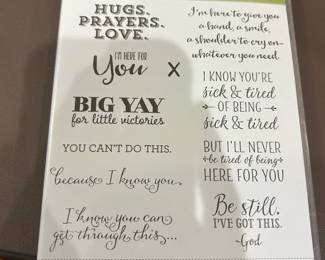 HUGS.
PRAYERS.
LOVE.
I'M HERE FOR
You
BIG YAY
for little victories
YOU CAN'T DO THIS.
because I know you.
I know you can
get through this...
I'm here to give you
a hand, a smile,
a shoulder to cry on—
whatever you need.
X
I KNOW YOU'RE
sick & tired
OF BEING
sick & tired
BUT I'LL NEVER
be tired of being
HERE FOR YOU
Be still.
I'VE GOT THIS.
~God